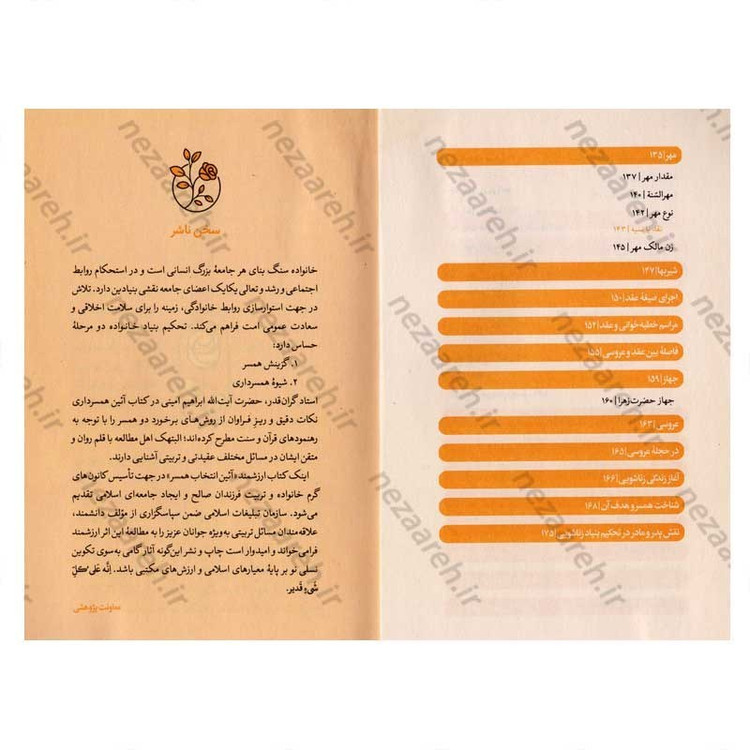 مهر | ۱۳۵
مقدار مهر | ۱۳۷
مهرالسّنة | ۱۴۰
نوع مهر | ۱۴۲
نقد یا نسیه | ۱۴۳
زن مالک مهر | ۱۴۵
شیربها | ۱۴۷
اجرای صیغهٔ عقد | ۱۵۰
مراسم خطبه‌خوانی و عقد | ۱۵۲
فاصلهٔ بین عقد و عروسی | ۱۵۵
جهاز | ۱۵۹
جهاز حضرت زهرا | ۱۶۰
عروسی | ۱۶۳
در حجلهٔ عروسی | ۱۶۵
آغاز زندگی زناشویی | ۱۶۶
شناخت همسر و هدف آن | ۱۶۸
نقش پدر و مادر در تحکیم بنیاد زناشویی | ۱۷۵
سخن ناشر
خانواده سنگ بنای هر جامعهٔ بزرگ انسانی است و در استحکام روابط
اجتماعی و رشد و تعالی یکایک اعضای جامعه نقشی بنیادین دارد. تلاش
در جهت استوارسازی روابط خانوادگی، زمینه را برای سلامت اخلاقی و
سعادت عمومی امت فراهم می‌کند. تحکیم بنیاد خانواده دو مرحلهٔ
حساس دارد:
۱. گزینش همسر
۲. شیوهٔ همسرداری
استاد گران‌قدر، حضرت آیت‌الله ابراهیم امینی در کتاب آئین همسرداری
نکات دقیق و ریز فراوان از روش‌های برخورد دو همسر را با توجه به
رهنمودهای قرآن و سنت مطرح کرده‌اند؛ البته‌ک اهل مطالعه با قلم روان و
متقن ایشان در مسائل مختلف عقیدتی و تربیتی آشنایی دارند.
اینک کتاب ارزشمند «آئین انتخاب همسر» در جهت تأسیس کانون‌های
گرم خانواده و تربیت فرزندان صالح و ایجاد جامعه‌ای اسلامی تقدیم
می‌شود. سازمان تبلیغات اسلامی ضمن سپاسگزاری از مؤلف دانشمند،
علاقه‌مندان مسائل تربیتی به‌ویژه جوانان عزیز را به مطالعهٔ این اثر ارزشمند
فرامی‌خواند و امیدوار است چاپ و نشر این‌گونه آثار گامی به‌سوی تکوین
نسلی نو بر پایهٔ معیارهای اسلامی و ارزش‌های مکتبی باشد. إنَّه عَلی کُلِّ
شَیءٍ قَدیر.
معاونت پژوهشی
nezaareh.ir